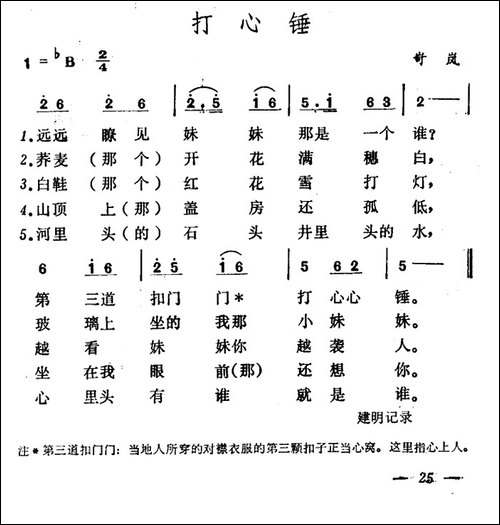 打心锤
1=♭B 2/4 岢岚
2̇ 6 2̇ 6 | 2̇.5̇ i 6 | 5.i 6 3 | 2 — |
1.远远 瞭见 妹 妹 那是 一个 谁?
2.荞麦(那个)开 花 满 穗 白,
3.白鞋(那个)红 花 雪 打 灯,
4.山顶 上(那)盖 房 还 孤 低,
5.河里 头(的)石 头 井里 头的 水,
6 i 6 | 2̇ 5̇ i 6 | 5 6 2 | 5 — ‖
第 三道 扣门 门* 打 心心 锤。
玻 璃上 坐的 我那 小 妹 妹。
越 看 妹 妹你 越 袭 人。
坐 在我 眼 前(那)还 想 你。
心 里头 有 谁 就 是 谁。
建明记录
注*第三道扣门门:当地人所穿的对襟衣服的第三颗扣子正当心窝。这里指心上人。
— 25 —